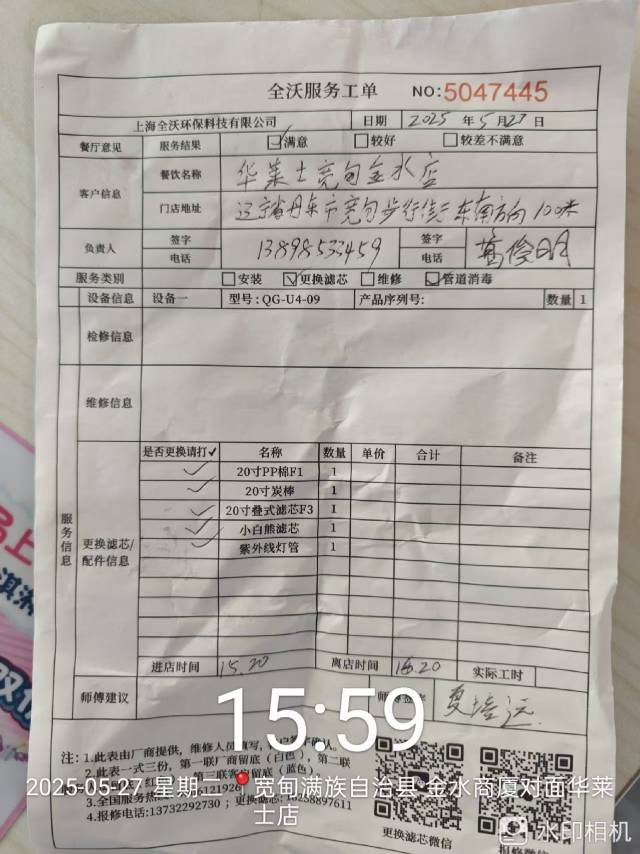 全沃服务工单 NO:5047445
上海全沃环保科技有限公司 日期 2025 年 5 月 27 日
餐厅意见 服务结果 ☑满意 □较好 □较差不满意
客户信息 餐饮名称 华莱士宽甸金水店
门店地址 辽宁省丹东市宽甸步行街东南方向100米
负责人 签字 电话 13898533459 签字 电话
服务类别 □安装 ☑更换滤芯 □维修 ☑管道消毒
设备信息 设备一 型号:QG-U4-09 产品序列号: 数量 1
检修信息
维修信息
服务信息
更换滤芯/配件信息
是否更换请打✓ 名称 数量 单价 合计 备注
✓ 20寸PP棉F1 1
✓ 20寸炭棒 1
✓ 20寸叠式滤芯F3 1
✓ 小白熊滤芯 1
✓ 紫外线灯管 1
进店时间 15.20 离店时间 16.20 实际工时
师傅建议 夏培远
15:59
注: 1.此表由厂商提供, 维修人员填写,
2.此表一式三份, 第一联厂商留底(白色), 第二联
客留底(蓝色)
3.全国服务热
4.报修电话:13732292730; 更换滤芯:
2025-05-27 星期二 宽甸满族自治县·金水商厦对面华莱
士店
更换滤芯微信
报修微信
水印相机